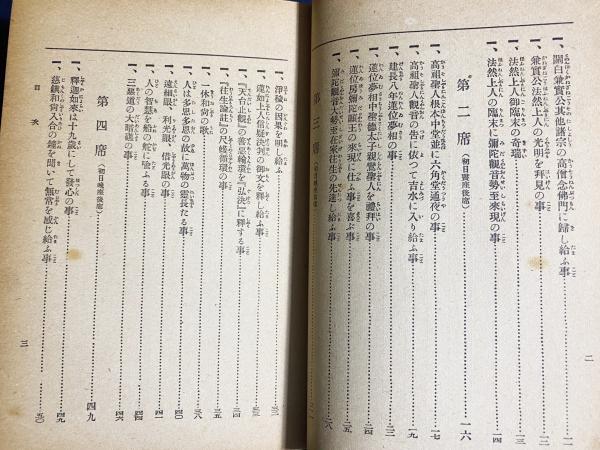 一、關白兼實公其他諸宗の高僧念佛門に歸し給ふ事……一一
一、兼實公法然上人の光明を拜見の事……一二
一、法然上人御臨末の奇瑞……一三
一、法然上人の臨末に彌陀觀音勢至來現の事……一四
第二席（初日晝座後席）……一六
一、高祖聖人根本中堂並に六角堂通夜の事……一七
一、高祖聖人觀音の告に依つて吉水に入り給ふ事……一九
一、建長八年蓮位夢想の事
一、蓮位夢想中聖德太子親鸞聖人を禮拜の事……二四
一、蓮位房彌陀願王の來現に仕ふ事を喜ぶ事……二五
一、彌陀觀音勢至在家往生の先達し給ふ事……二六
第三席（初日晚座前席）
二
一、淨穢の因果を明し給ふ
一、蓮如上人信疑決判の御文を釋し給ふ事
一、『天台止觀』の宿息輪環を『弘決』に釋する事
一、『往生論註』の尺蠖循環の事
一、一休和尙の歌……三八
一、人は多思多慮故に萬物の靈長たる事……四〇
一、遠緇眼、利光眼、借光眼の事……四一
一、人の智慧を船の舵に喩ふる事……四四
一、三惡道の大暗礁の事……四六
第四席（初日晚座後席）……四九
一、釋迦如來は十九歲にして發心の事……四九
一、慈鎭和尙入合の鐘を聞いて無常を感じ給ふ事……五〇
目次
三